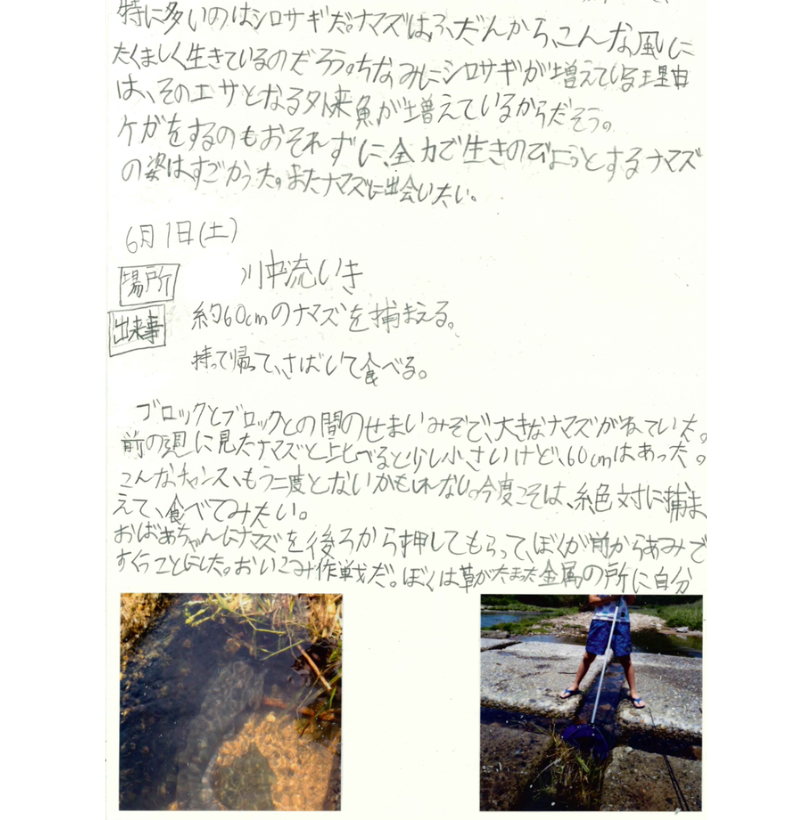 特に多いのはシロサギだ。ナマズは、ふだんから、こんな風に
たくましく生きているのだろう。ちなみにシロサギが増えている理由
は、そのエサとなる外来魚が増えているからだそう。
ケガをするのもおそれずに、全力で生きのびようとするナマズ
の姿はすごかった。またナマズに出会いたい。
6月1日(土)
場所 川中流いき
出来事 約60cmのナマズを捕まえる。
持って帰って、さばいて食べる。
ブロックとブロックとの間のせまいみぞで、大きなナマズがねていた。
前の週に見たナマズと比べると少し小さいけど、60cmはあった。
こんなチャンス、もう二度とないかもしれない。今度こそは、絶対に捕ま
えて、食べてみたい。
おばあちゃんにナマズを後ろから押してもらって、ぼくが前からあみで
すくうことにした。おいこみ作戦だ。ぼくは草がたまった金属の所に自分